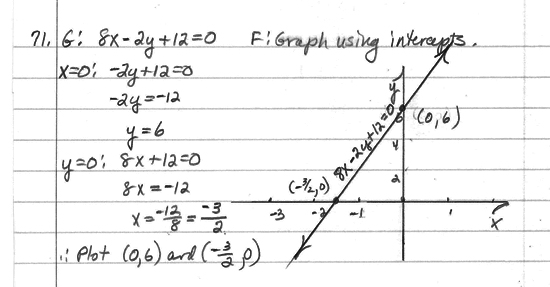 71. G: 8x-2y+12=0 F: Graph using intercepts.
x=0: -2y+12=0
-2y=-12
y=6
y=0: 8x+12=0
8x=-12
x=-12/8=-3/2
∴ Plot (0,6) and (-3/2,0)
y
8x-2y+12=0
6 (0,6)
4
2
(-3/2,0)
-3 -2 -1 1 x